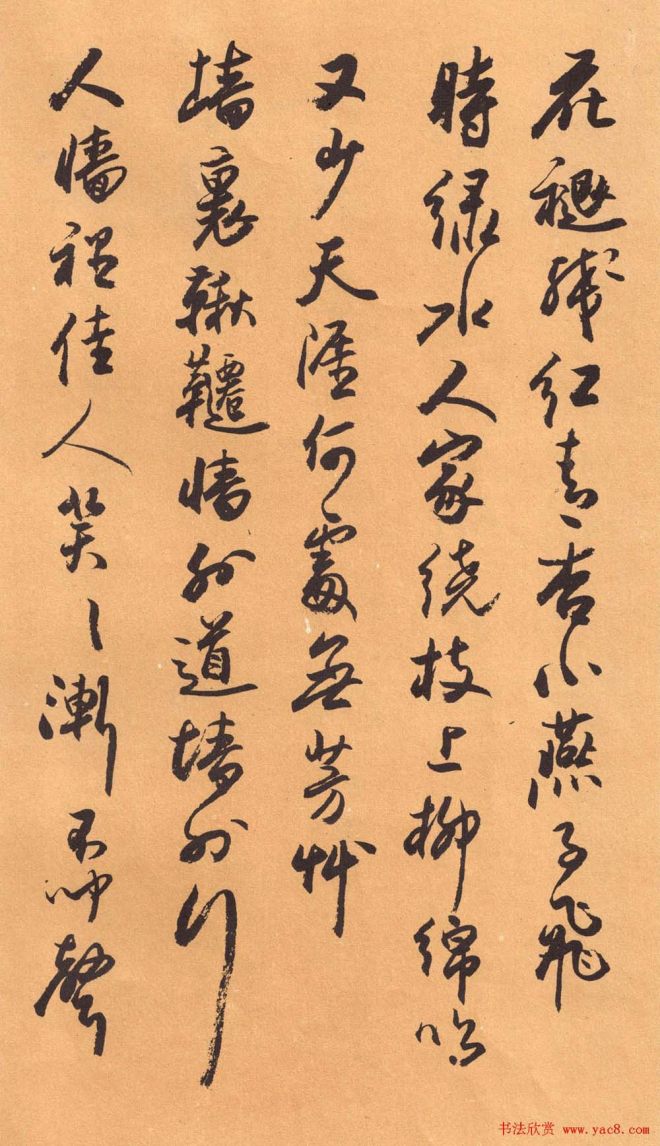 花褪残红青杏小燕子飛
時绿水人家绕枝上柳绵吹
又少天涯何處無芳艸
墙裏鞦韆墙外道墙外行
人墙裡佳人笑〻漸不闻聲
书法欣赏 www.yac8.com